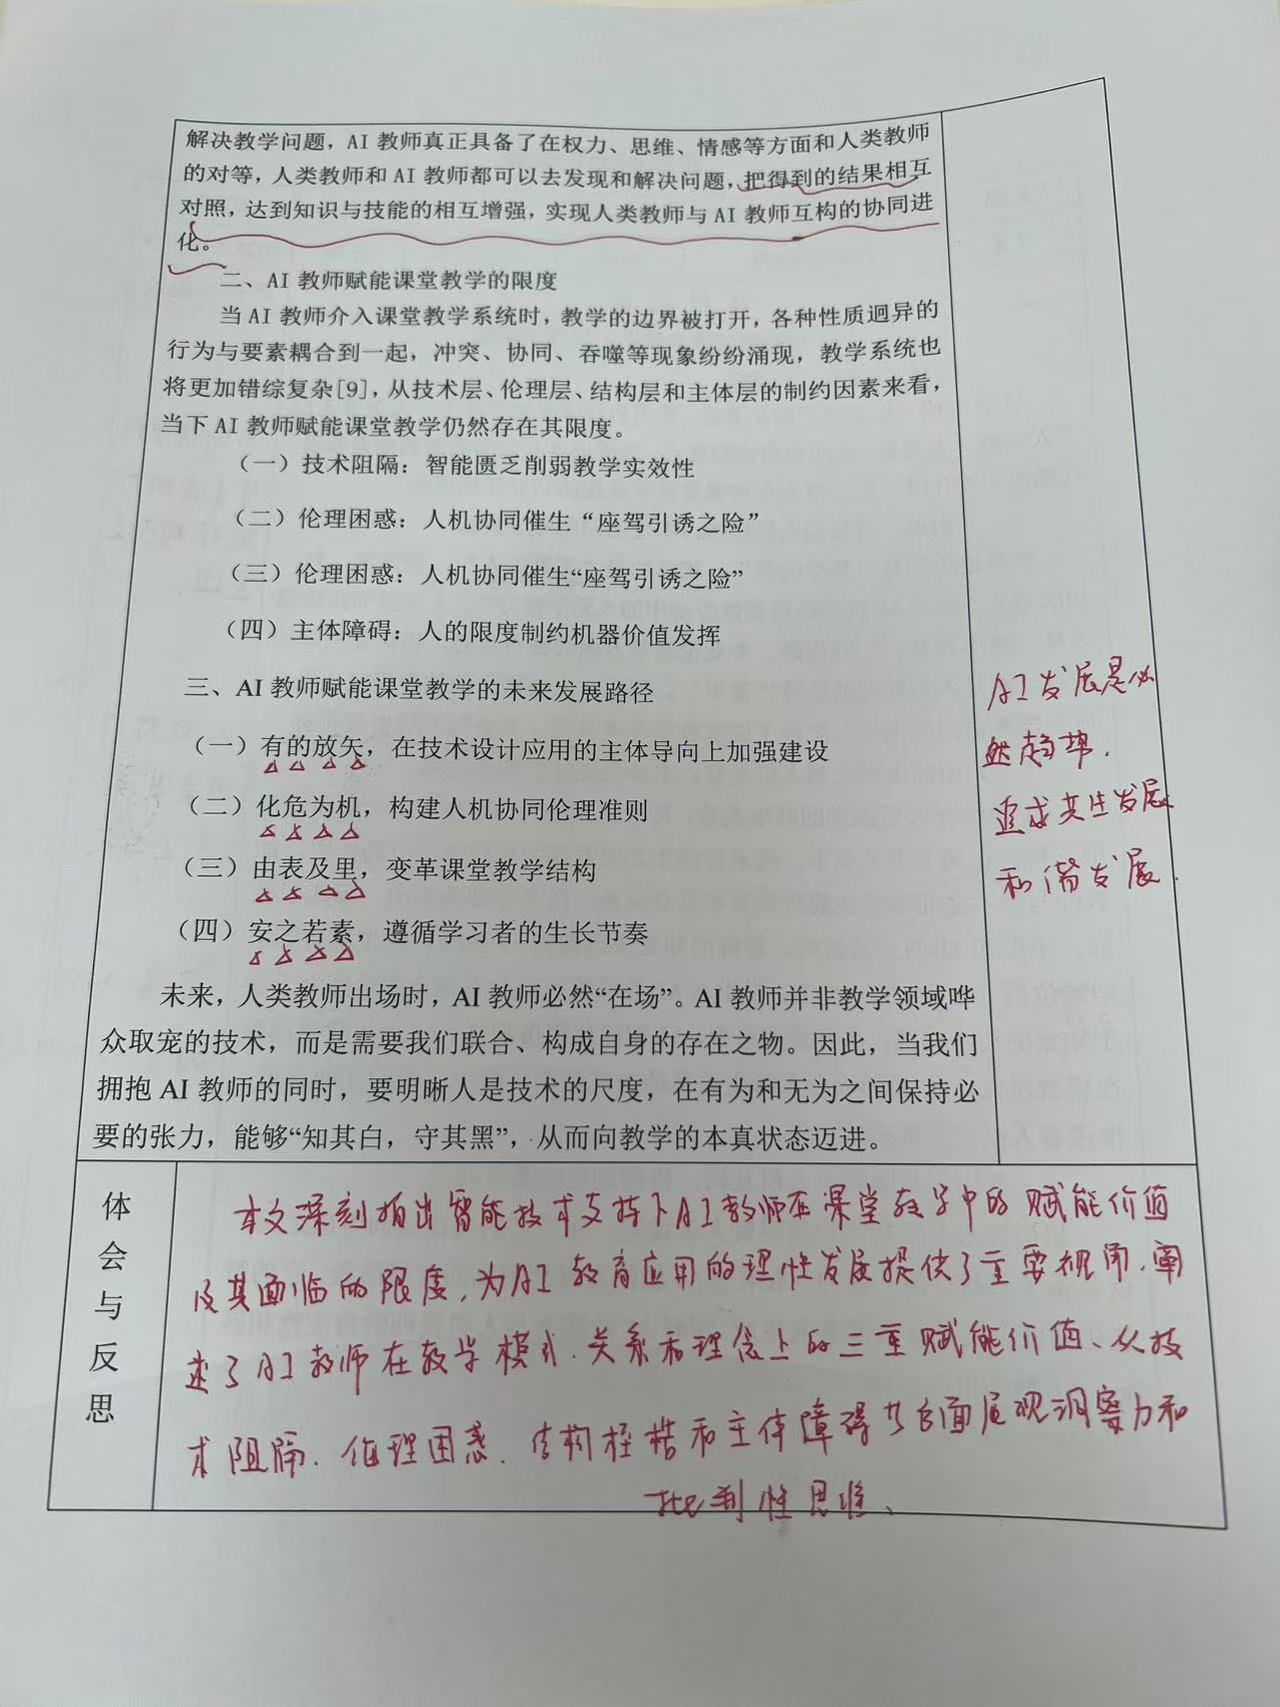 解决教学问题，AI 教师真正具备了在权力、思维、情感等方面和人类教师
的对等，人类教师和 AI 教师都可以去发现和解决问题，把得到的结果相互
对照，达到知识与技能的相互增强，实现人类教师与 AI 教师互构的协同进
化。
二、AI 教师赋能课堂教学的限度
当 AI 教师介入课堂教学系统时，教学的边界被打开，各种性质迥异的
行为与要素耦合到一起，冲突、协同、吞噬等现象纷纷涌现，教学系统也
将更加错综复杂[9]，从技术层、伦理层、结构层和主体层的制约因素来看，
当下 AI 教师赋能课堂教学仍然存在其限度。
（一）技术阻隔：智能匮乏削弱教学实效性
（二）伦理困惑：人机协同催生“座驾引诱之险”
（三）伦理困惑：人机协同催生“座驾引诱之险”
（四）主体障碍：人的限度制约机器价值发挥
三、AI 教师赋能课堂教学的未来发展路径
（一）有的放矢，在技术设计应用的主体导向上加强建设
（二）化危为机，构建人机协同伦理准则
（三）由表及里，变革课堂教学结构
（四）安之若素，遵循学习者的生长节奏
未来，人类教师出场时，AI 教师必然“在场”。AI 教师并非教学领域哗
众取宠的技术，而是需要我们联合、构成自身的存在之物。因此，当我们
拥抱 AI 教师的同时，要明晰人是技术的尺度，在有为和无为之间保持必
要的张力，能够“知其白，守其黑”，从而向教学的本真状态迈进。
AI 发展是必
然趋势.
追求共生发展
和谐发展.
体会与反思
本文深刻指出智能技术支持下AI教师在课堂教学中的赋能价值
及其面临的限度，为AI教育应用的理性发展提供了重要视角，阐
述了AI教师在教学模式、关系和理念上的三重赋能价值、从技
术阻隔、伦理困惑、结构桎梏和主体障碍方面展现洞察力和
批判性思维、